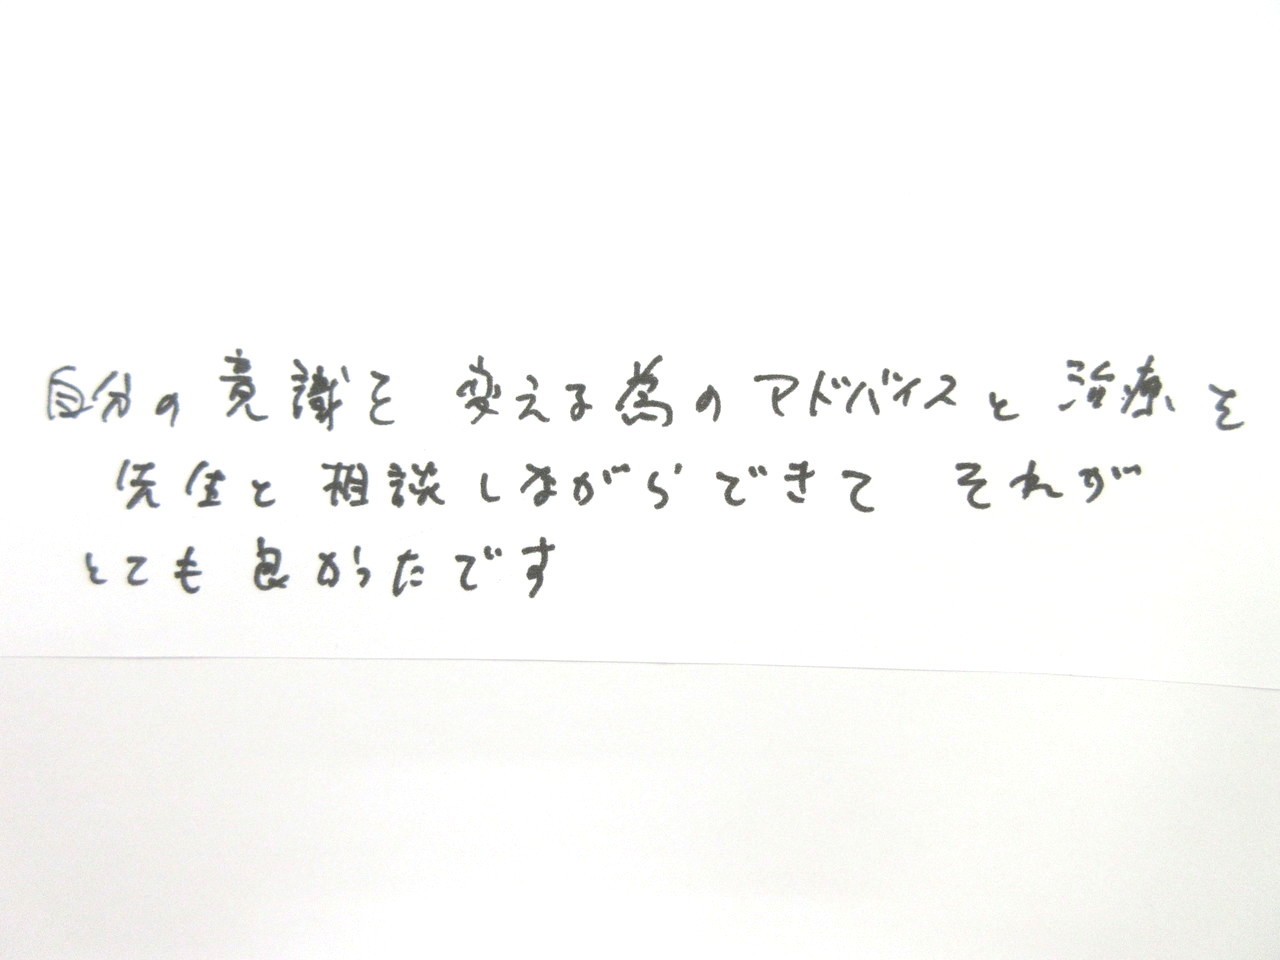 自分の意識を 変える為のアドバイスと 治療を
先生と 相談しながらできて それが
とても良かったです